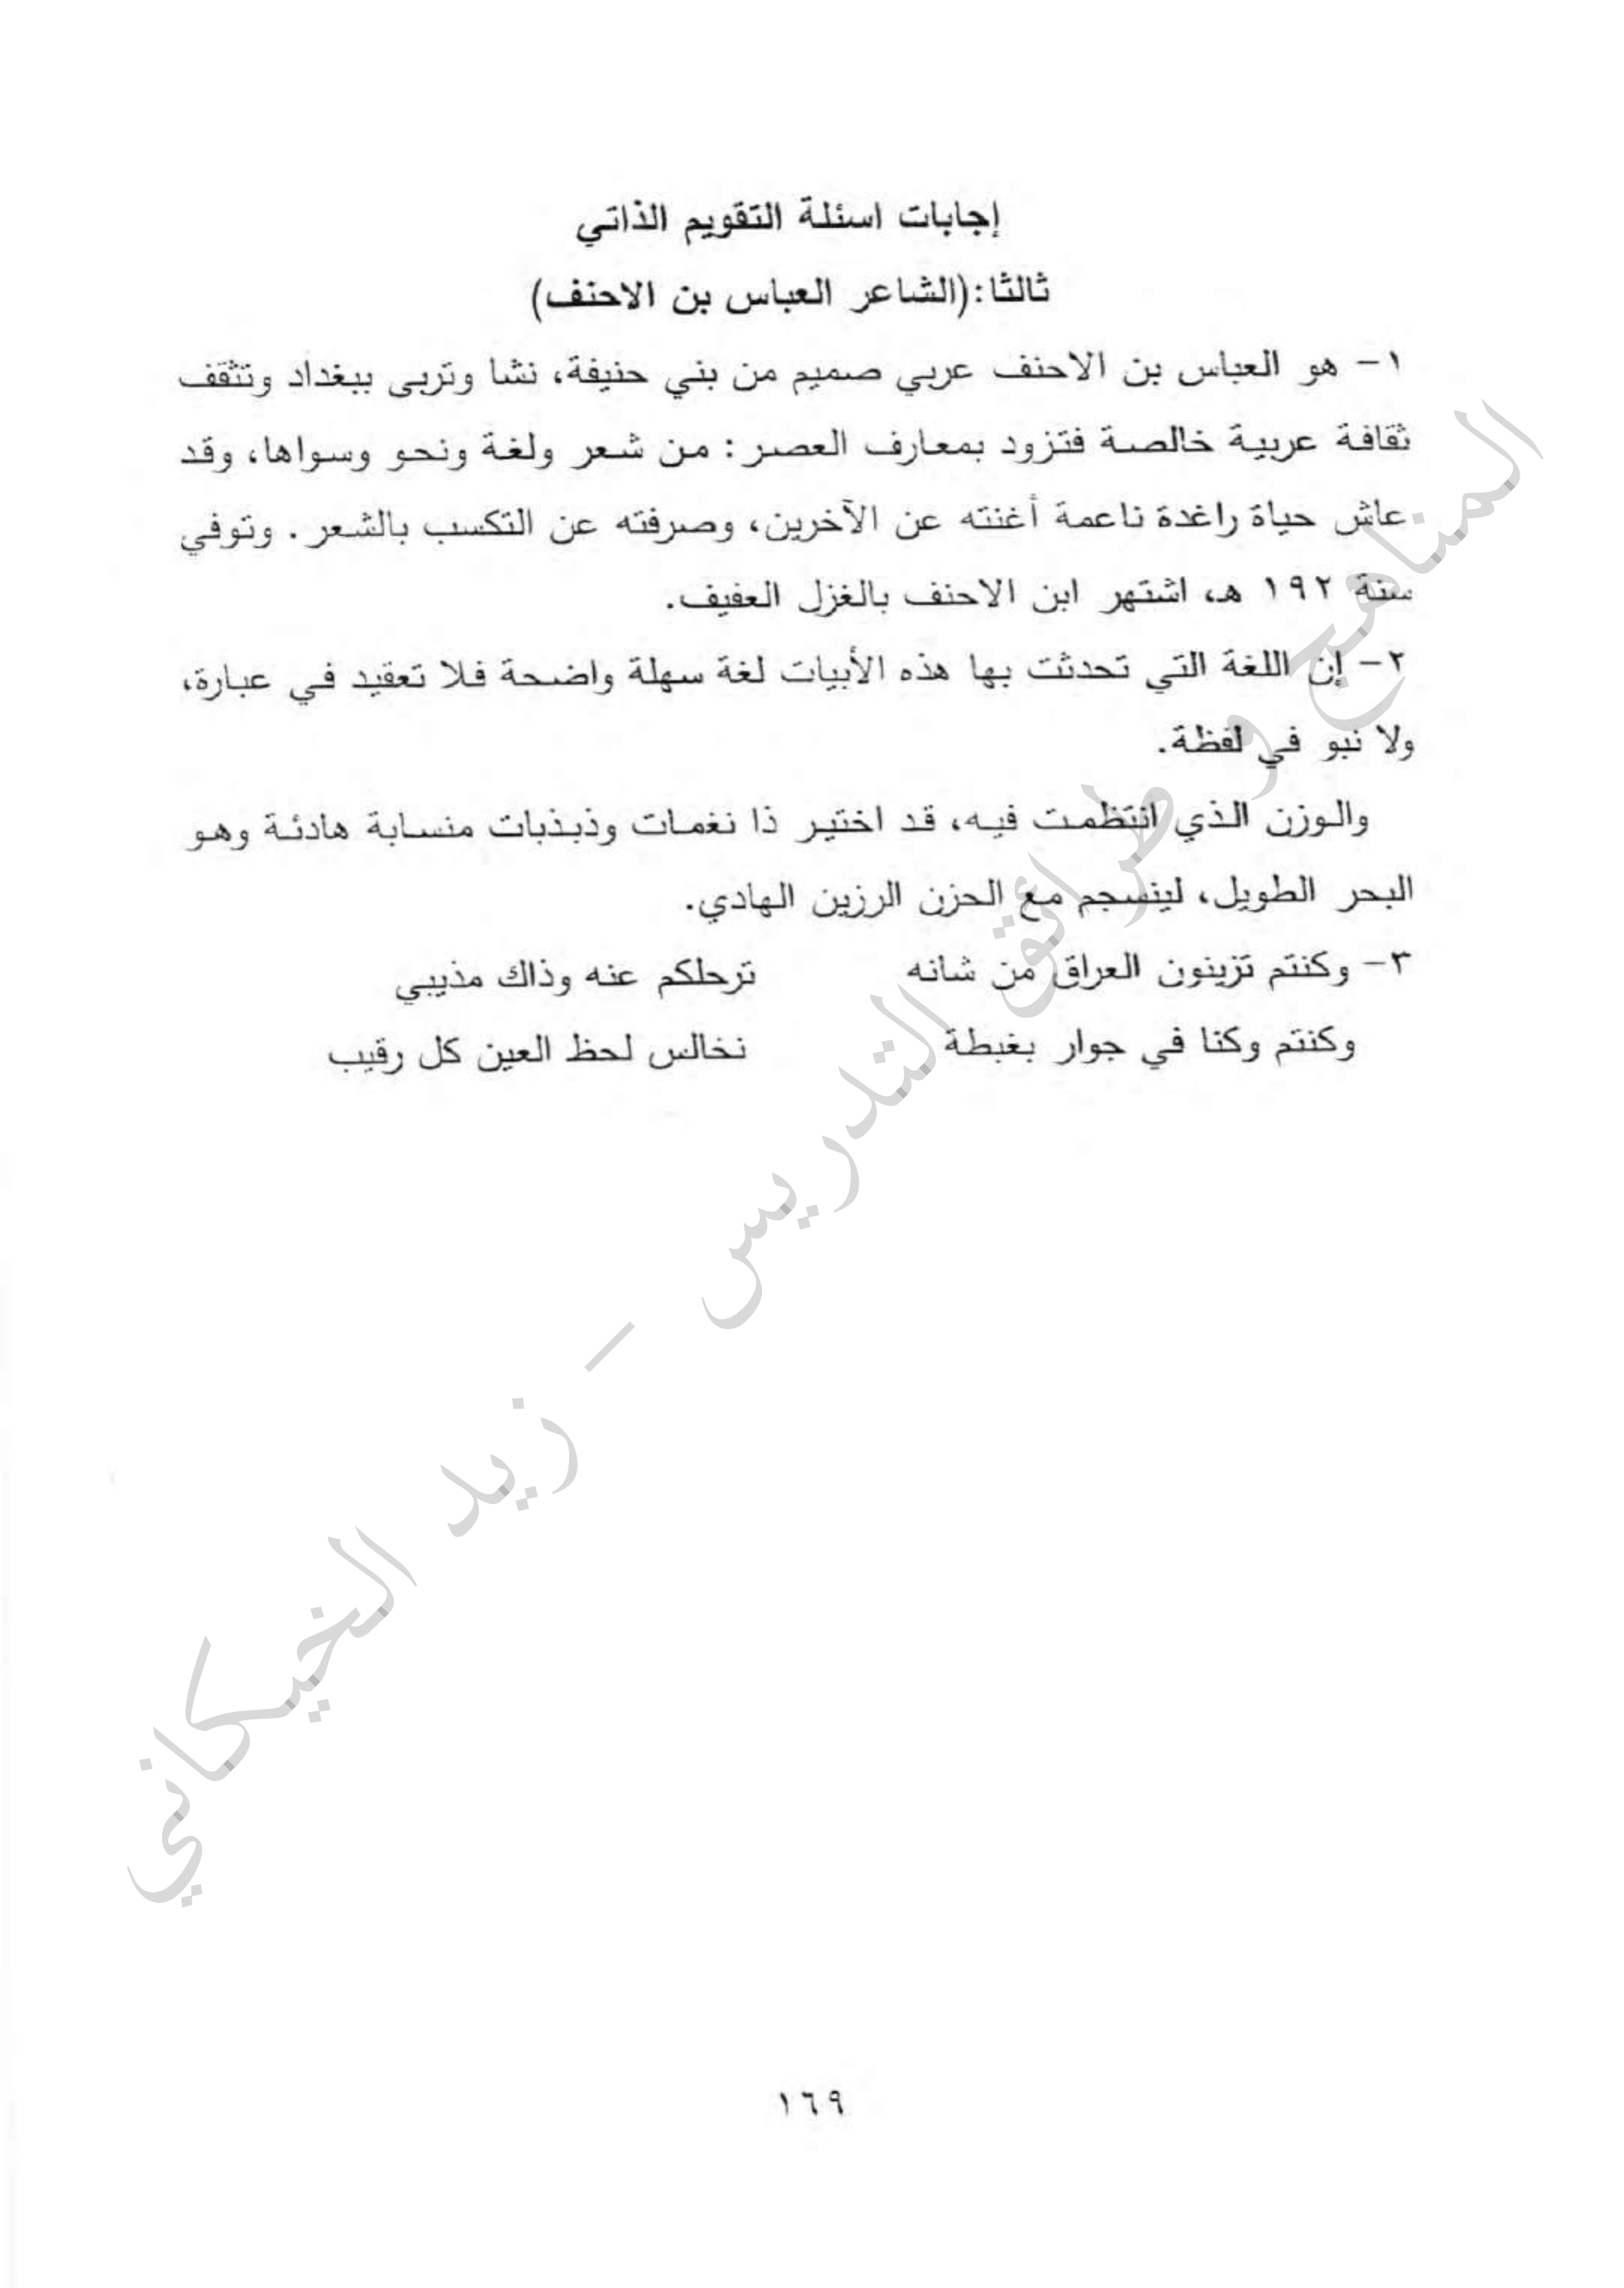 إجابات اسئلة التقويم الذاتي
ثالثا:(الشاعر العباس بن الاحنف)
١- هو العباس بن الاحنف عربي صميم من بني حنيفة، نشا وتربى ببغداد وتثقف
ثقافة عربية خالصة فتزود بمعارف العصر: من شعر ولغة ونحو وسواها، وقد
عاش حياة راغدة ناعمة أغنته عن الآخرين، وصرفته عن التكسب بالشعر. وتوفي
سنة ١٩٢ هـ، اشتهر ابن الاحنف بالغزل العفيف.
٢- إن اللغة التي تحدثت بها هذه الأبيات لغة سهلة واضحة فلا تعقيد في عبارة،
ولا نبو في لفظة.
والوزن الذي انتظمت فيه، قد اختير ذا نغمات وذبذبات منسابة هادئة وهو
البحر الطويل، لينسجم مع الحزن الرزين الهادي.
٣- وكنتم تزينون العراق من شانه ترحلكم عنه وذاك مذيبي
وكنتم وكنا في جوار بغبطة نخالس لحظ العين كل رقيب
المناهج و طرائق التدريس – زيد الخيكاني
١٦٩